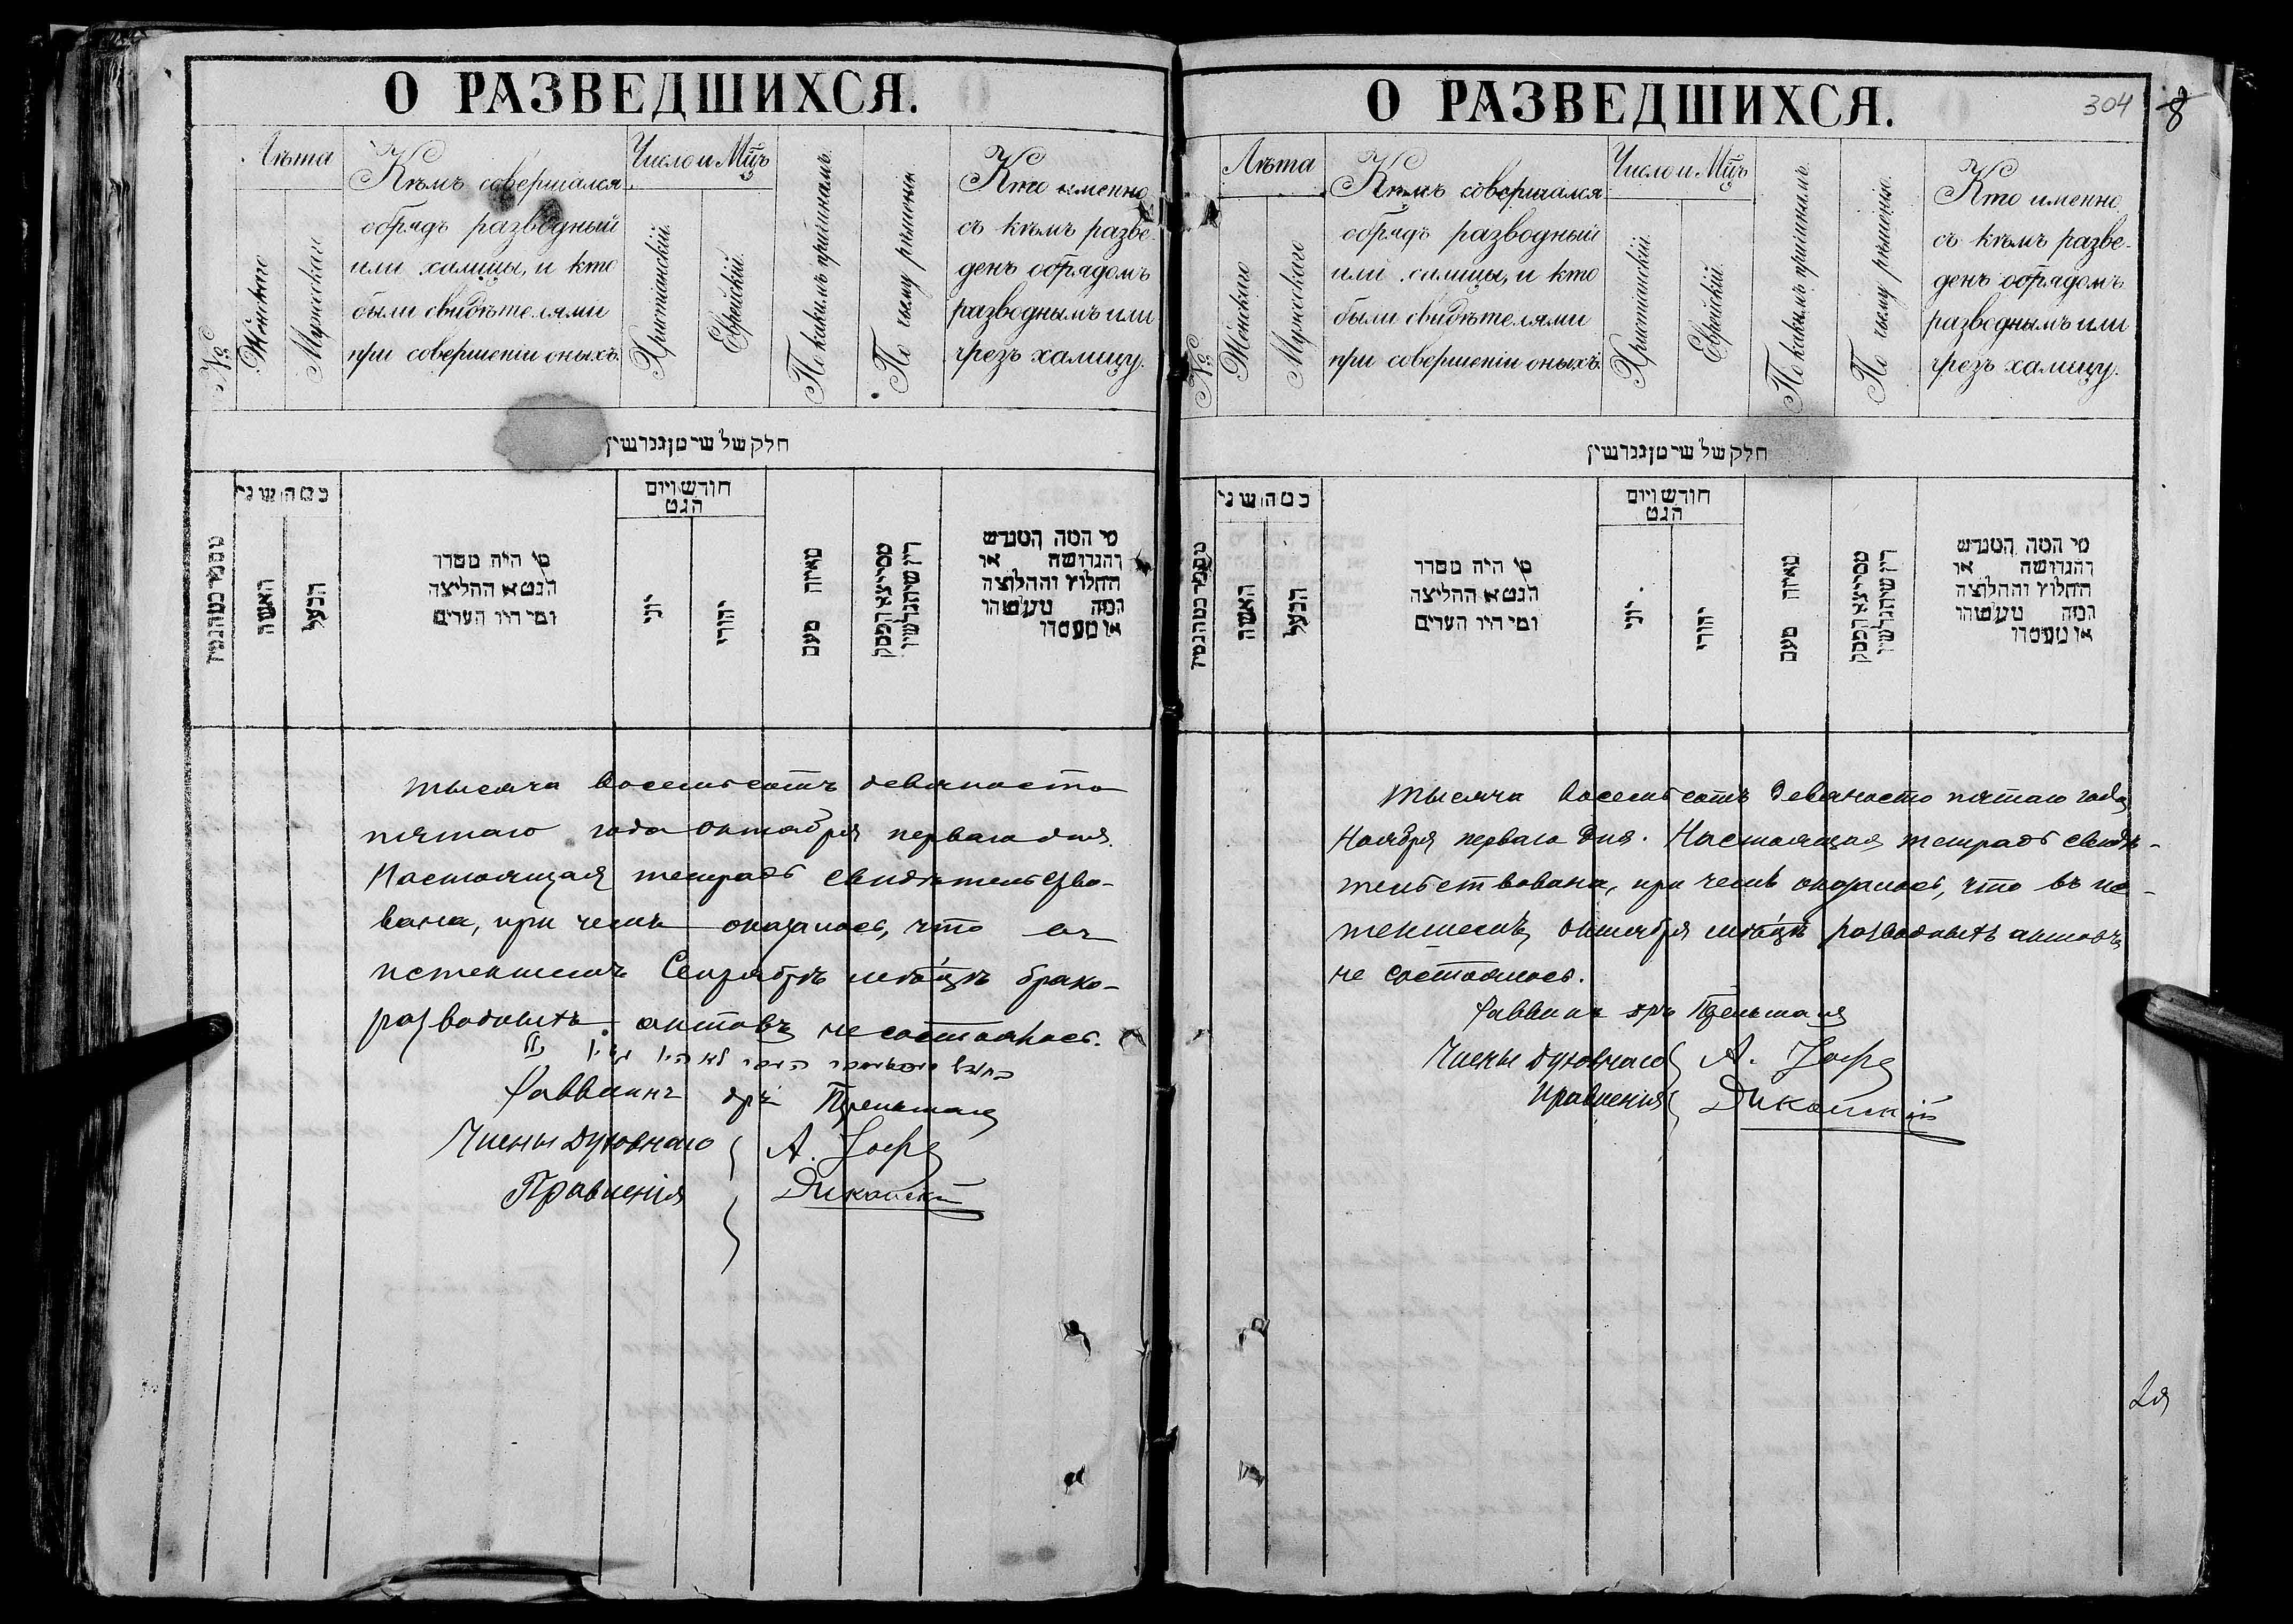 О РАЗВЕДШИХСЯ.
№
Лѣта
Женскаго
Мужескаго
Кѣмъ совершался
обрядъ разводный
или халицы, и кто
были свидѣтелями
при совершеніи оныхъ.
Число и Мц̃ъ
Христіанскій.
Еврейскій.
По какимъ причинамъ.
По чьему рѣшенію
Кто именно
съ кѣмъ разве-
денъ обрядомъ
разводнымъ или
чрезъ халицу.
חלק של שי טן גגרשין
כמה שני
האשה
הבעל
מי היה מסדר
הגט א החליצה
ומי היו העדים
חודש ויום
הגט
יוני
יהודי
מאיזה טעם
מי המה המגרש
והגרושה או
החלוץ והחלוצה
המה מעשהו
או מעמדו
тысяча восемьсотъ девяносто
пятаго года октября перваго дня.
Настоящая тетрадь свидѣтельство-
вана, при чемъ оказалось, что въ
истекшемъ Сентябрѣ мѣсяцѣ брако-
разводныхъ актовъ не состоялось.
Раввинъ дръ
Члены Духовнаго
Правленія
А. Іоффе
О РАЗВЕДШИХСЯ.
304
8
№
Лѣта
Женскаго
Мужескаго
Кѣмъ совершался
обрядъ разводный
или халицы, и кто
были свидѣтелями
при совершеніи оныхъ.
Число и Мц̃ъ
Христіанскій.
Еврейскій.
По какимъ причинамъ.
По чьему рѣшенію.
Кто именно
съ кѣмъ разве-
денъ обрядомъ
разводнымъ или
чрезъ халицу.
חלק של שי טן גגרשין
כמה שני
האשה
הבעל
מי היה מסדר
הגט א החליצה
ומי היו העדים
חודש ויום
הגט
יוני
יהודי
מאיזה טעם
מי המה המגרש
והגרושה או
החלוץ והחלוצה
המה מעשהו
או מעמדו
тысяча восемьсотъ девяносто пятаго года
Ноября перваго дня. Настоящая тетрадь свидѣ-
тельствована, при чемъ оказалось, что въ ис-
текшемъ октября мѣсяцѣ разводныхъ актовъ
не состоялось.
Раввинъ дръ
Члены Духовнаго
Правленія
А. Іоффе